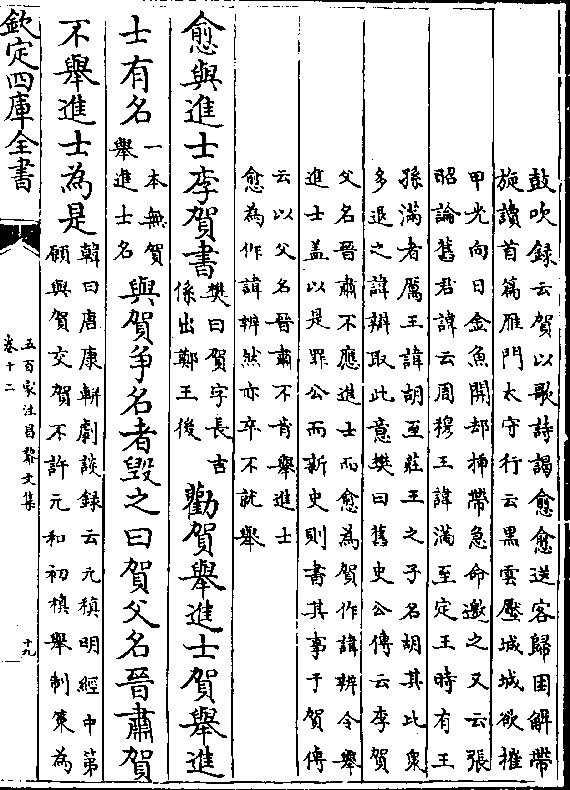 鼓吹録云賀以歌詩謁愈愈送客歸困解帶
旋讀首篇雁門太守行云黒雲壓城城欲摧
甲光向日金魚開却揷帶急命邀之又云張
昭論舊君諱云周穆王諱滿至定王時有王
孫滿者厲王諱胡至莊王之子名胡其比衆
多退之諱辨取此意樊曰舊史公傳云李賀
父名晉肅不應進士而愈為賀作諱辨令舉
進士盖以是罪公而新史則書其事于賀傳
云以父名晉肅不肯舉進士
愈為作諱辨然亦卒不就舉
愈與進士李賀書樊曰賀字長吉係出鄭王後勸賀舉進士賀舉進
士有名一本無賀舉進士名與賀爭名者毀之曰賀父名晉肅賀
不舉進士為是韓曰唐康軿劇談録云元稹明經中第願與賀交賀不許元和初稹舉制策為
欽定四庫全書
五百家注昌黎文集
卷十二
十九